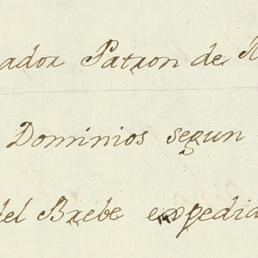 ador Patron de
Dominios segun
del Brebe expedid